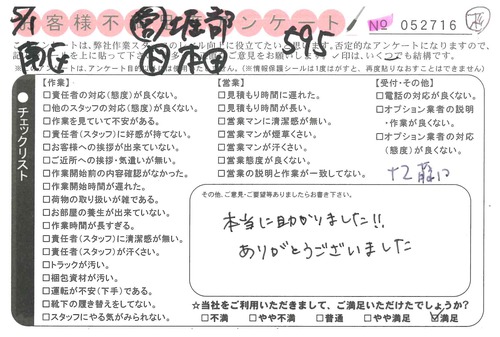 お客様不満足アンケート
No 052716
5/1
堀部
595
本アンケートは、弊社作業スタッフのレベル向上に役立てたいと思います。否定的なアンケートになりますので、
✓印は、いくつでも結構です。
(※情報保護シールは1度がはすと、再度貼りなおすことはできません)
チェックリスト
【作業】
□責任者の対応(態度)が良くない。
□他のスタッフの対応(態度)が良くない。
□作業を見ていて不安がある。
□責任者(スタッフ)に好感が持てない。
□お客様への挨拶が出来ていない。
□ご近所への挨拶・気遣いが無い。
□作業開始前の内容確認がなかった。
□作業開始時間が遅れた。
□荷物の取り扱いが雑である。
□お部屋の養生が出来ていない。
□作業時間が長すぎる。
□責任者(スタッフ)に清潔感が無い。
□責任者(スタッフ)が汗くさい。
□トラックが汚い。
□梱包資材が汚い。
□運転が不安(下手)である。
□靴下の履き替えをしてない。
□スタッフにやる気がみられない。
【営業】
□見積もり時間に遅れた。
□見積もり時間が長い。
□営業マンに清潔感が無い。
□営業マンが煙草くさい。
□営業マンが汗くさい。
□営業態度が良くない。
□営業の説明と作業が一致してない。
【受付・その他】
□電話の対応が良くない。
□オプション業者の説明
・作業が良くない。
□オプション業者の対応
(態度)が良くない。
その他、ご意見・ご要望等ありましたらお書き下さい。
本当に助かりました!!
ありがとうございました
☆当社をご利用いただきまして、ご満足いただけたでしょうか?
□不満 □やや不満 □普通 □やや満足 ☑満足